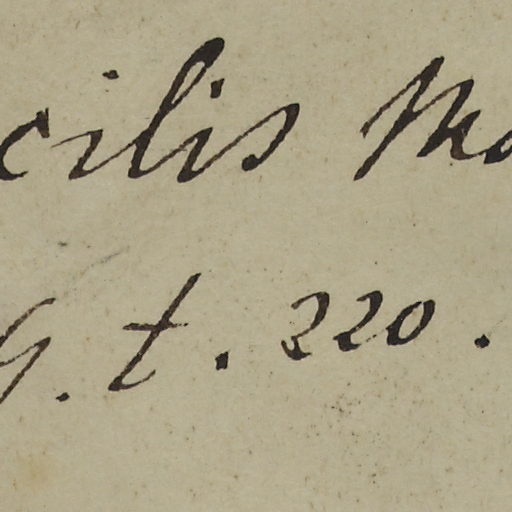 cilis Mo
g. t. 220.